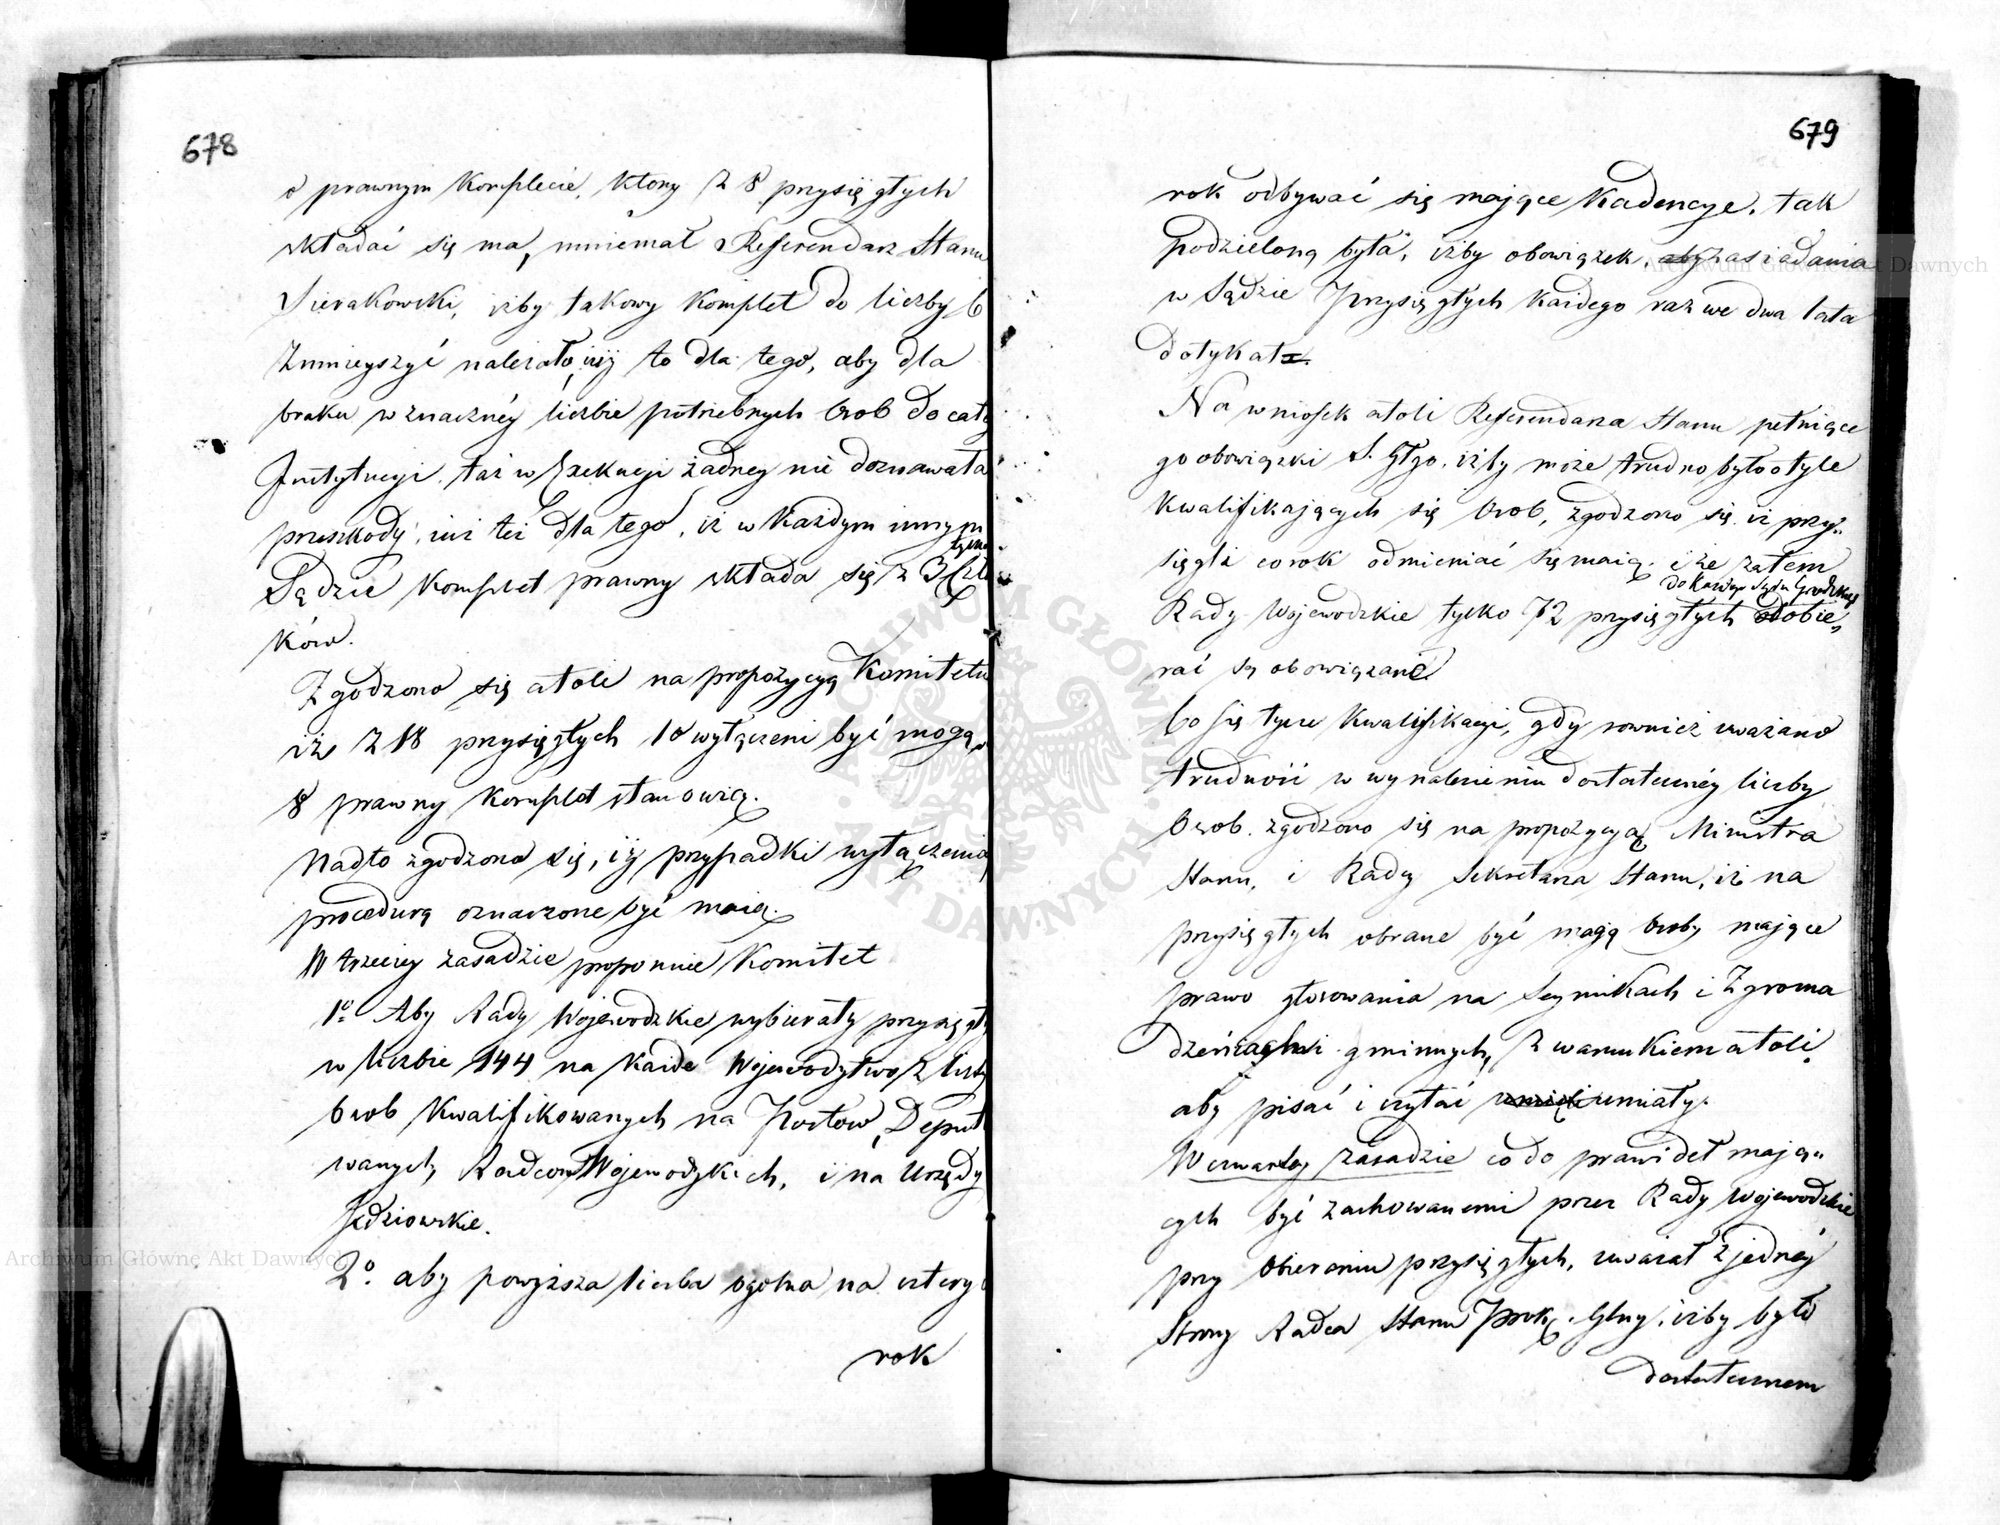 678
o prawnym Komplecie, ktory z 8 przysięgłych
składać się ma, mniemał Referendarz Stanu
Sierakowski, iżby takowy Komplet do liczby 6
zmnieyszyć należało, iuż to dla tego, aby dla
braku w znacznéy liczbie potrzebnych Osob do cały
Instytucyi, taż w Exekucyi żadney nie doznawała
przeszkody, iuż też dla tego, iż w każdym innym
Sądzie Komplet prawny składa się z 3 tylko Czło
ków.
Zgodzono się atoli na propozycyą Komitetu
iż z 18 przysięgłych 10 wyłączeni być mogą,
8 prawny Komplet stanowią.
Nadto zgodzono się, iż przypadki wyłączenia
procedurą oznaczone być maią.
W trzeciey zasadzie proponuie Komitet
1º Aby Rady Wojewodzkie wybierały przysięgły
w liczbie 144 na każde Wojewodztwo z listy
Osob Kwalifikowanych na Posłow, Deput
wanych, Radcow Wojewodzkich, i na Urzędy
Sędziowskie.
2º aby powyższa liczba ogolna na cztery
rok
679
rok odbywać się mające Kadencye, tak
podzieloną była, iżby obowiązek, aby zasiadania
w Sądzie Przysięgłych każdego raz we dwa lata
dotykał
Na wniosek atoli Referendarza Stanu pełniące
go obowiązki S. Głgo, iżby może trudno było o tyle
Kwalifikających się Osob, zgodzono się iż przy„
sięgli co rok odmieniać się maią, i że zatem
do każdego Sądu Grodzkiego
Rady Wojewodzkie tylko 72 przysięgłych obie„
rać są obowiązane
Co się tycze Kwalifikacyi, gdy rownież uważano
trudność w wynalezieniu dostatecznéy liczby
Osob, zgodzono się na propozycyą Ministra
Stanu, i Radcy Sekretarza Stanu, iż na
przysięgłych obrane być mogą Osoby mające
prawo głosowania na Seymikach i Zgroma
dzeniach gminnych, z warunkiem atoli,
aby pisać i czytać umiały.
W czwartey zasadzie co do prawideł mają„
cych być zachowanemi przez Rady Wojewodzkie
przy obieraniu przysięgłych, uważał z jednéy
Strony Radca Stanu Prok. Glny, iżby było
dostatecznem
Archiwum Główne Akt Dawnych
Archiwum Główne Akt Dawnych
ARCHIWUM GŁÓWNE AKT DAWNYCH